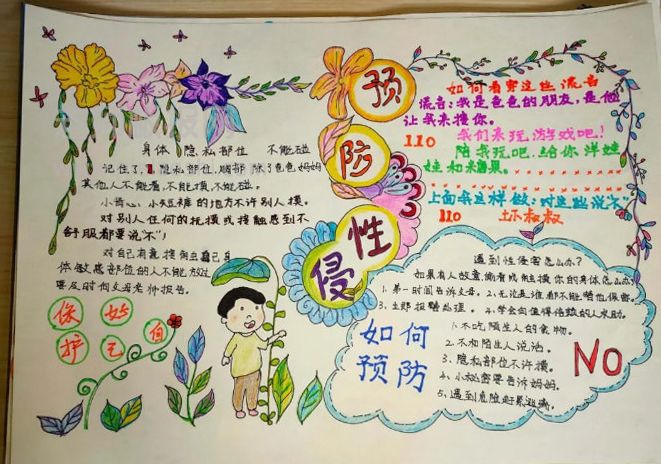 预
防
性
侵
身体 隐私部位 不能碰
记住了,隐私部位,胸部 除了爸爸妈妈
其他人不能看,不能摸,不能碰。
小背心,小短裤的地方不许别人摸。
对别人任何的抚摸或接触感到不
舒服都要说"不"!
对自己有意接触且自己身
体敏感部位的人不能放过
要及时向父母老师报告。
保 好
护 己 自
如何看穿这些谎言
谎言:我是爸爸的朋友,是他
让我来接你。
110 我们来玩游戏吧!
陪我玩吧,给你洋娃
娃和糖果。
上面我这样做:对这些说"不"
110 坏叔叔
遇到性侵害怎么办?
如果有人故意偷看或触摸你的身体怎么办?
1. 第一时间告诉父母。2. 无论是谁都不能替他保密。
3. 立即报警处理。4. 学会向值得信赖的人求助。
如何
预防
1. 不吃陌生人的食物。
2. 不和陌生人说话。
3. 隐私部位不许摸。
4. 小秘密要告诉妈妈。
5. 遇到危险赶紧逃离。
NO